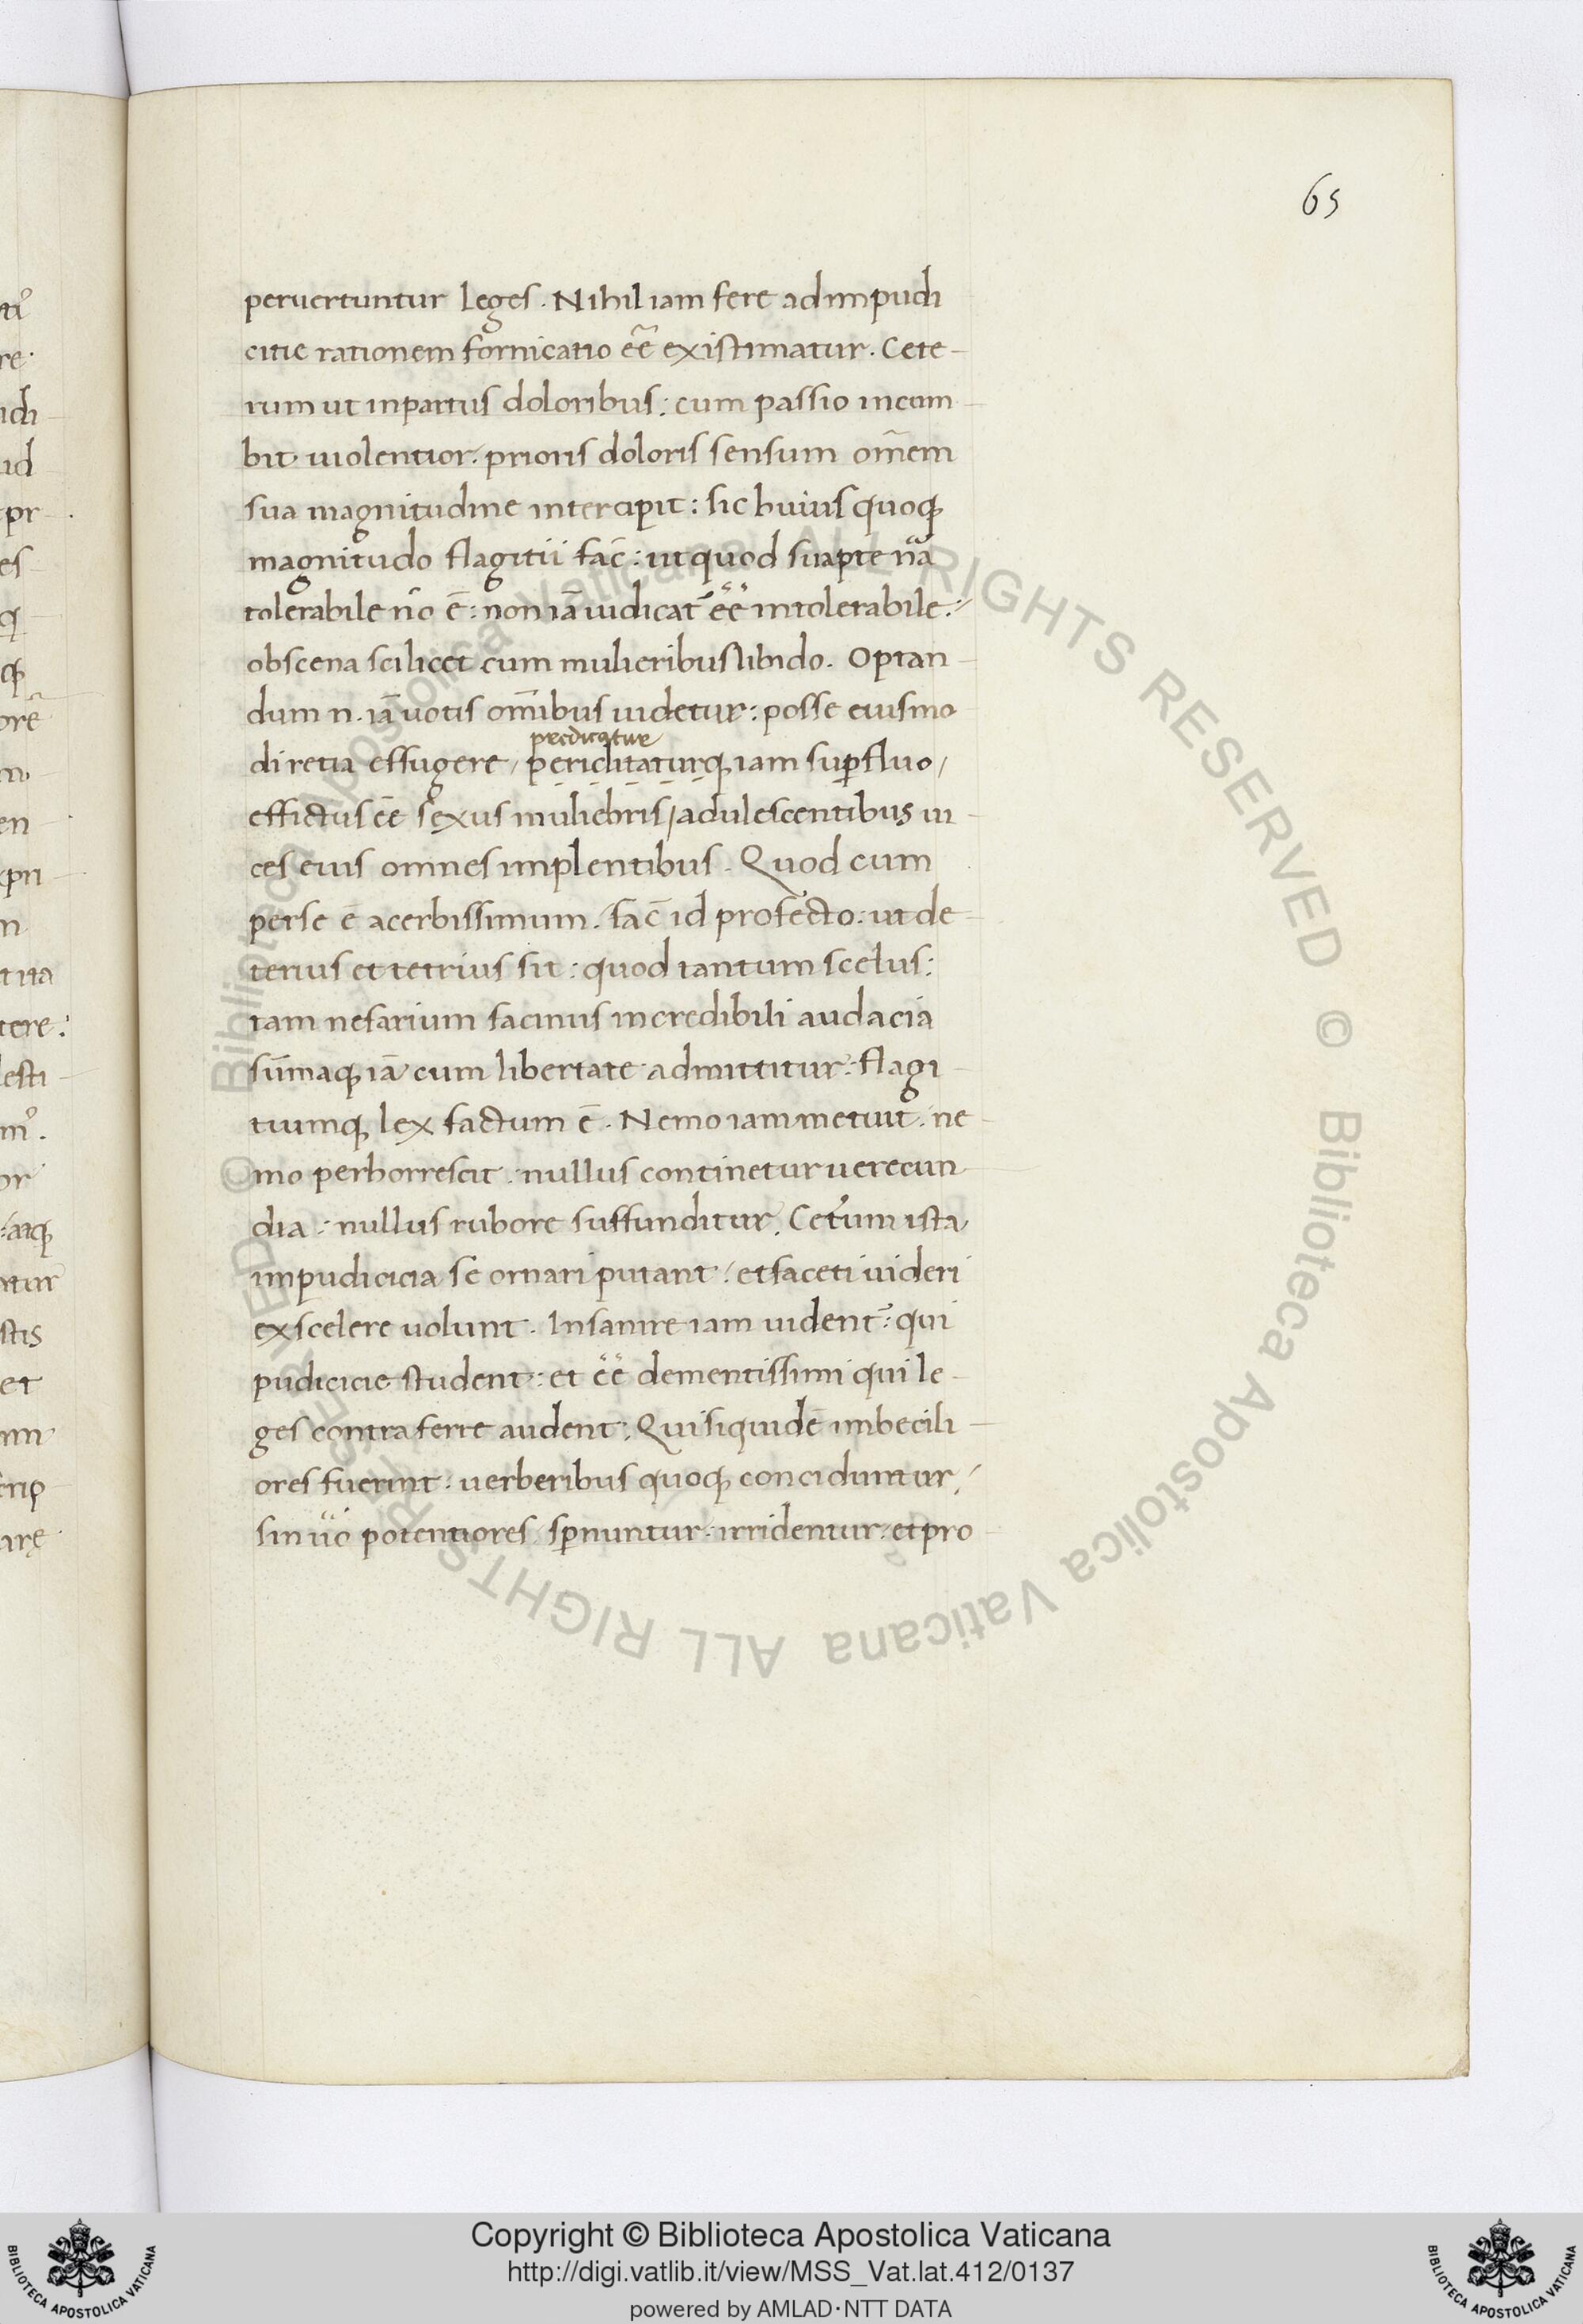 65
peruertuntur leges. Nihil iam fere ad impudi
citie rationem fornicatio eẽ existimatur. Cete-
rum ut in partus doloribus: cum passio incum
bit uiolentior. prioris doloris sensum om̃em
sua magnitudine intercipit: sic huius quoq;
magnitudo flagitii fac̃: ut quod suapte nã
tolerabile nõ ẽ: non iã iudicat᷑ eẽ intolerabile:
obscena scilicet cum mulieribus libido. Optan
dum n. iã uotis om̃ibus uidetur: posse eiusmo
predicatur
di retia effugere, periclitaturq; iam suꝑfluo,
effictus eẽ sexus muliebris, adulescentibus ui
ces eius omnes implentibus. Quod cum
per se ẽ acerbissimum. fac̃ id profecto: ut de
terius et tetrius sit: quod tantum scelus:
tam nefarium facinus incredibili audacia
sũmaq; iã cum libertate admittitur: flagi
tiumq; lex factum ẽ. Nemo iam metuit. ne
mo perhorrescit. nullus continetur uerecun
dia: nullus rubore suffunditur. Cet̃um ista
impudicicia se ornari putant: et faceti uideri
ex scelere uolunt. Insanire iam uident᷑: qui
pudicicie student: et eẽ dementissimi qui le-
ges contra ferre audent. Qui siquidẽ imbecili
ores fuerint: uerberibus quoq; conciduntur,
sin uõ potentiores sꝑnuntur. irridentur. et pro
Copyright © Biblioteca Apostolica Vaticana
http://digi.vatlib.it/view/MSS_Vat.lat.412/0137
powered by AMLAD·NTT DATA
BIBLIOTECA APOSTOLICA VATICANA
BIBLIOTECA APOSTOLICA VATICANA
© Biblioteca Apostolica Vaticana ALL RIGHTS RESERVED © Biblioteca Apostolica Vaticana ALL RIGHTS RESERVED